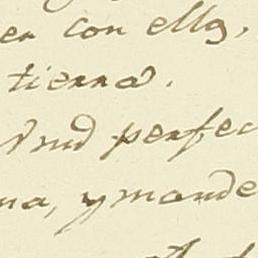 en con ella,
tierna.
Vmd perfec
na, y mande